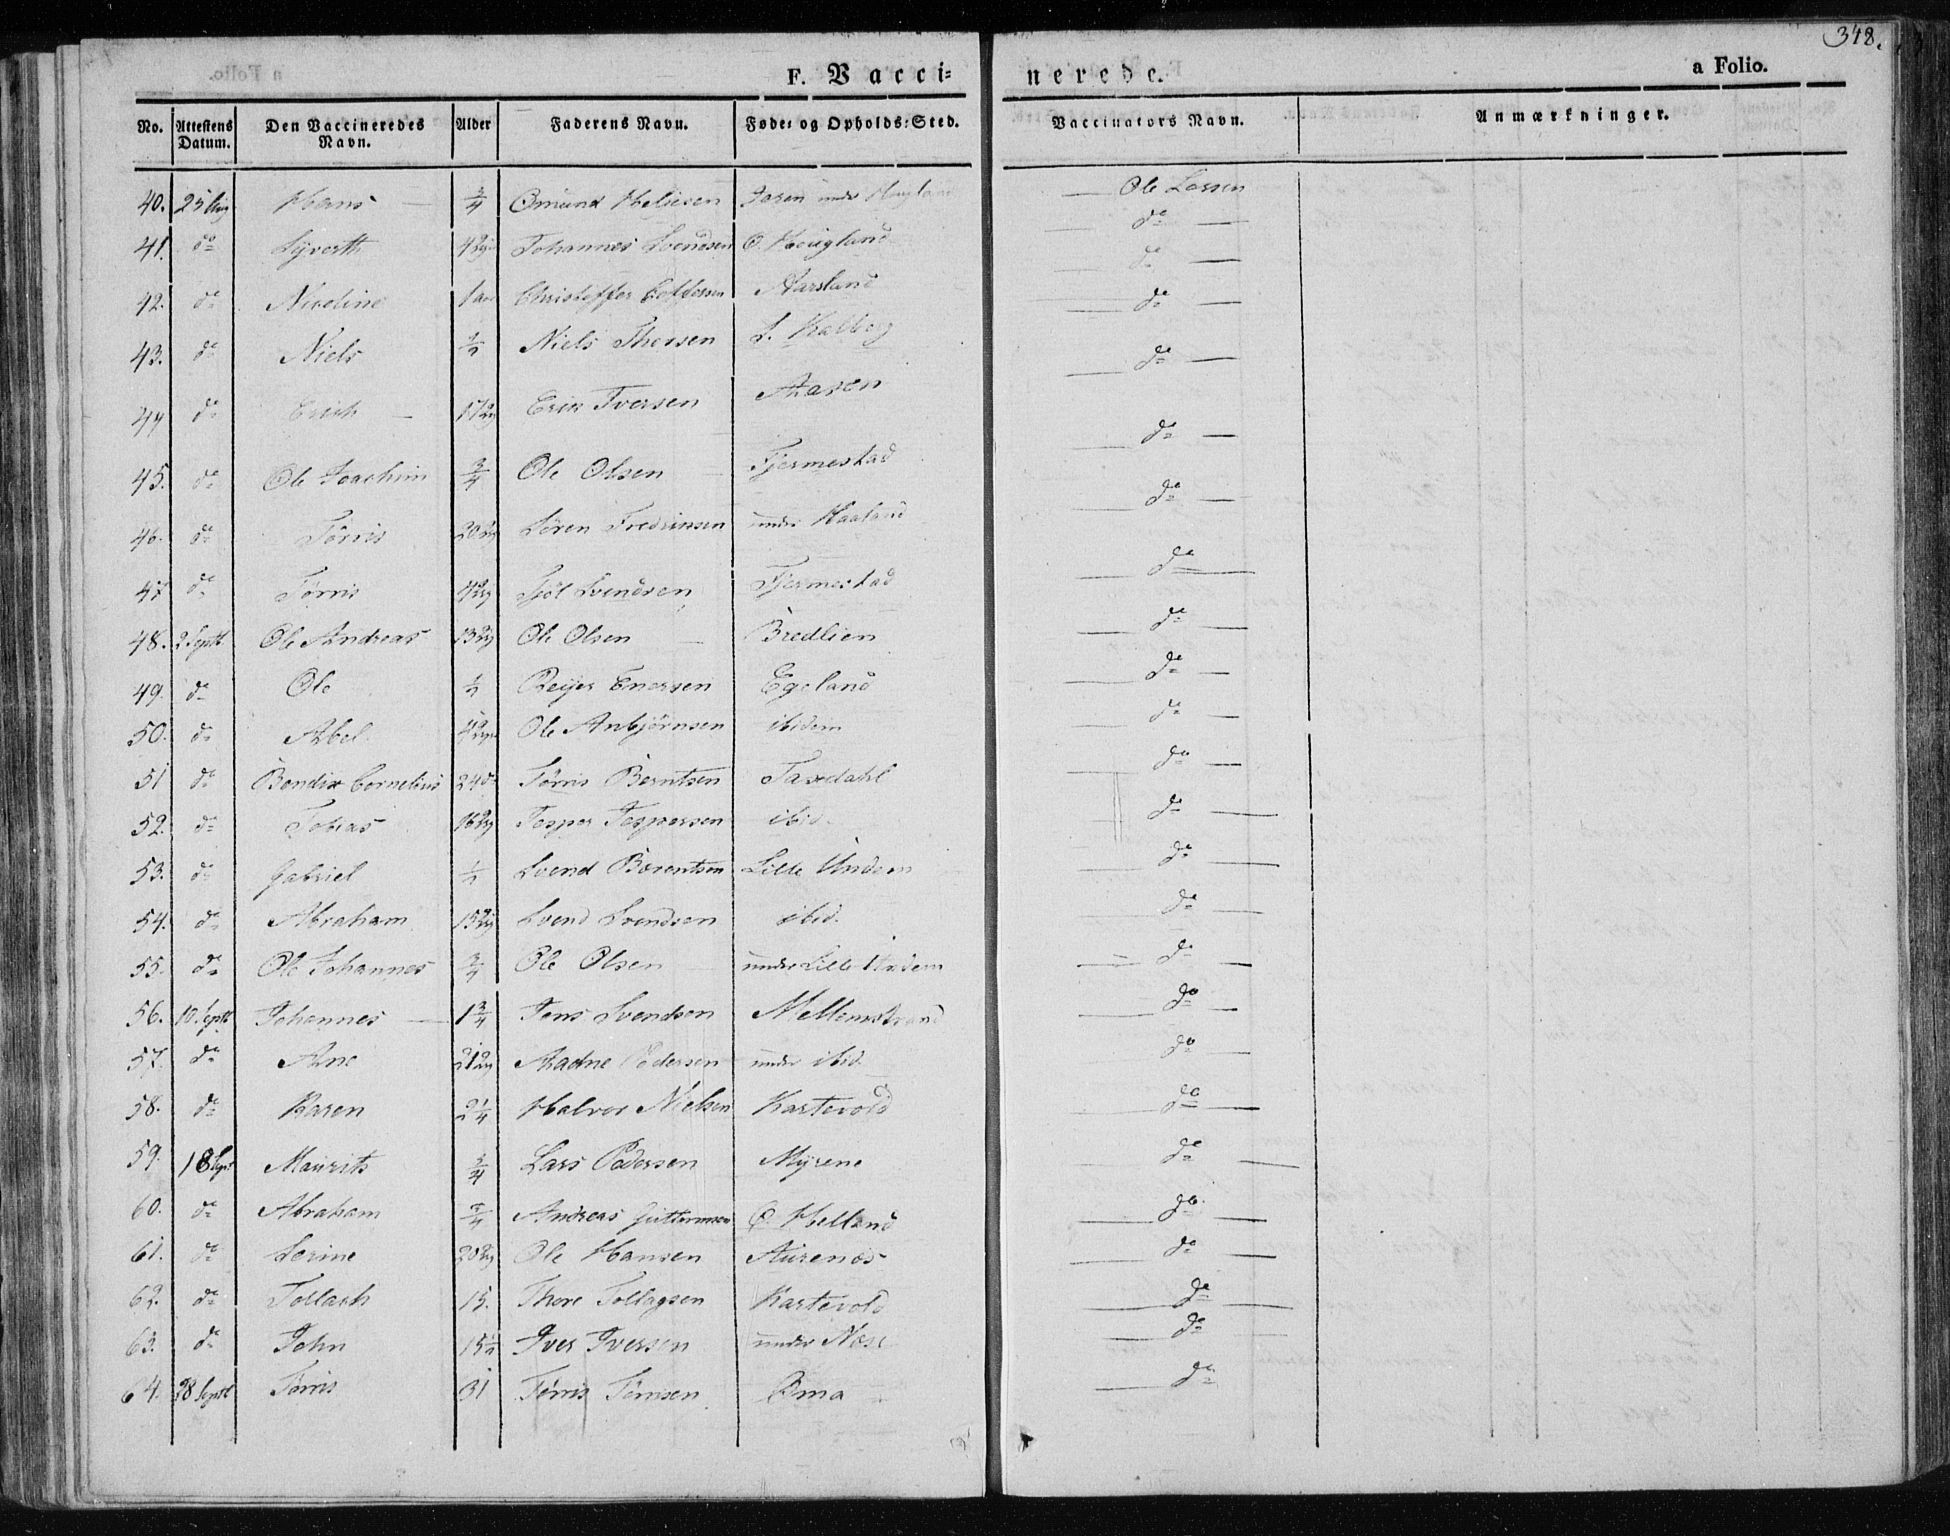 348.
F. Vaccinerede. a Folio.
No. | Attestens Datum. | Den Vaccineredes Navn. | Alder | Faderens Navn. | Føde- og Opholds-Sted. | Vaccinators Navn. | Anmærkninger.
40. | 25 Aug | Hans | 3/4 | Omund Heljesen | under | Ole Larsen
41. | do | Syverth | 4 | Johannes Svendsen | Ø. Haugland | do
42. | do | Nicoline | 1 aar | Christoffer | Aarsland | do
43. | do | Niels | 1/2 | Niels Thorsen | S. Kalberg | do
44 | do | Erich | 17 | Erik Iversen | Aasen | do
45. | do | Ole Joachim | 3/4 | Ole Olsen | Fjermestad | do
46. | do | Törris | 20 | Sören Fredriksen | under Haaland | do
47 | do | Tørris | 4 | Svendsen | Fjermestad | do
48. | 2 Septb | Ole Andreas | 13 | Ole Olsen | Bredlien | do
49. | do | Ole | 1/2 | Reijer Enersen | Egeland | do
50. | do | Abel | 4 | Ole Anbjörnsen | ibidem | do
51 | do | Bendix Cornelius | 24 do | Tørris Berntsen | Taxdahl | do
52. | do | Tobias | 16 | Jesper Jespersen | ibid. | do
53. | do | Gabriel | 1/2 | Svend Berentsen | Lille Undem | do
54. | do | Abraham | 15 | Svend Svendsen | ibid. | do
55. | do | Ole Johannes | 3/4 | Ole Olsen | under Lille Undem | do
56. | 10 Septb | Johannes | 1 3/4 | Jens Svendsen | Mellemstrand | do
57. | do | Ane | 21 | Aadne Pedersen | under ibid. | do
58. | do | Karen | 2 1/4 | Halvor Nielsen | Kartevold | do
59. | 18 Sept | Maurits | 3/4 | Lars Pedersen | Myrene | do
60. | do | Abraham | 3/4 | Andreas Guttormsen | Ø. Helland | do
61. | do | Serine | 20 | Ole Hansen | Aurenes | do
62. | do | Tollach | 15. | Thore Tollagsen | Kartevold | do
63. | do | John | 15 1/2 | Iver Iversen | under Nese | do
64. | 28 Septb | Tørris | 31 | Tørris Tørrisen | Oma | do